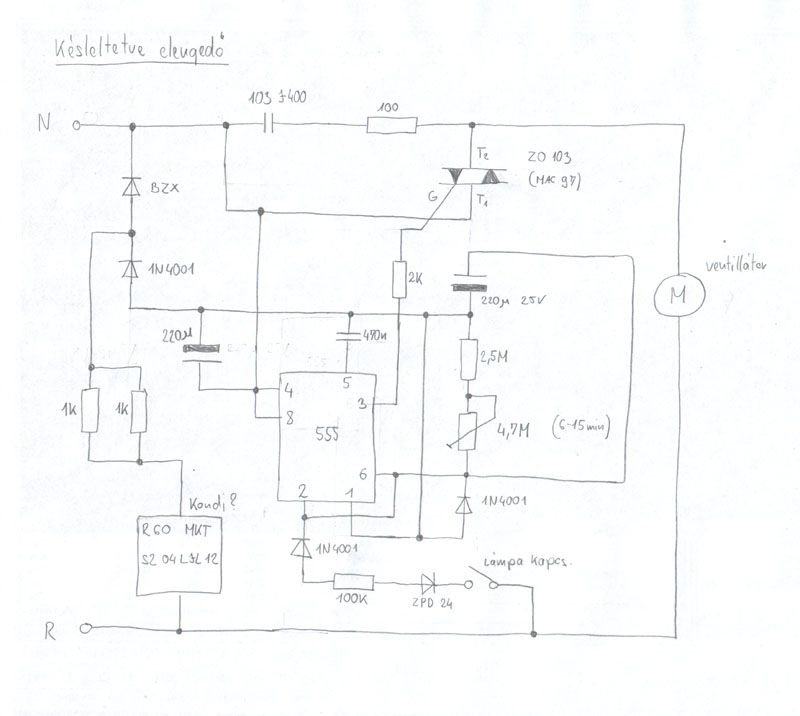 Késleltetve elengedő
N
103 J400
100
T2
ZO 103
(MAC 97)
G
T1
BZX
1N4001
2K
220µ 25V
ventillátor
M
220µ
470n
2,5M
5
4
3
8
555
1K
1K
4,7M
(6-15min)
6
2
1
Kondi?
1N4001
R60 MKT
1N4001
lámpa kapcs.
100K
ZPD 24
R